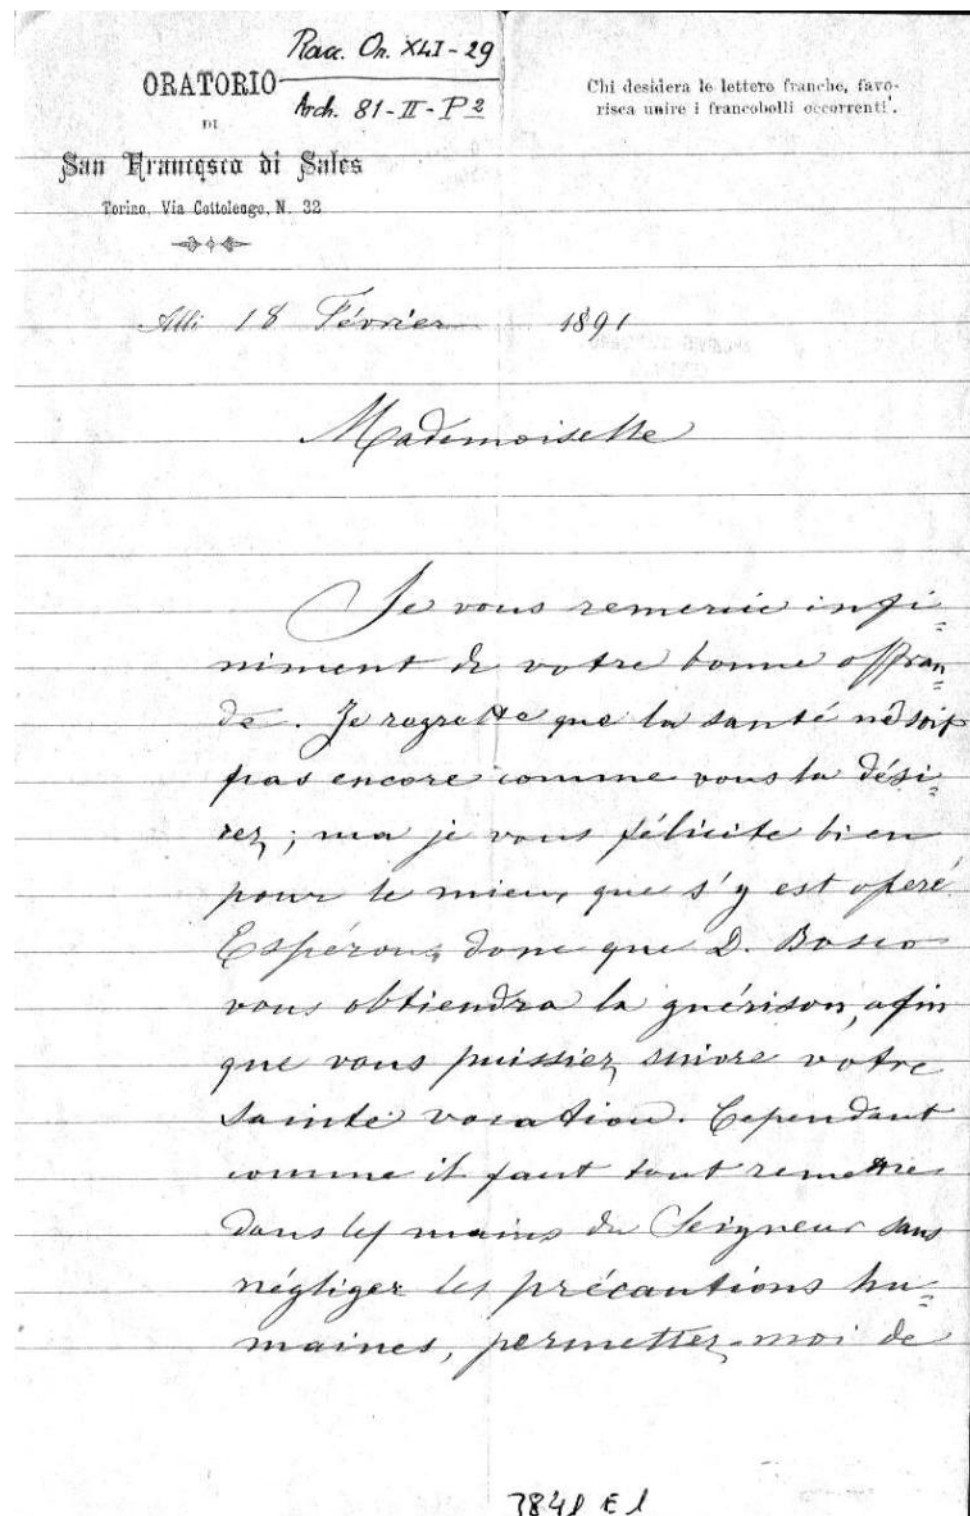 Racc. Or. XLI-29
ORATORIO
Arch. 81-II-P2
DI
San Francesco di Sales
Torino, Via Cottolengo, N. 32
Chi desidera le lettere franche, favo-
risca unire i francobolli occorrenti.
Alli 18 Février 1891
Mademoiselle
Je vous remercie infi=
niment de votre bonne offran=
de. Je regrette que la santé ne soit
pas encore comme vous la dési=
rez; ma je vous félicite bien
pour le mieux que s'y est operé
Espérons donc que D. Bosco
vous obtiendra la guérison, afin
que vous puissiez suivre votre
sainte vocation. Cependant
comme il faut tout remettre
dans les mains du Seigneur sans
négliger les précautions hu=
maines, permettez-moi de
3848 E1